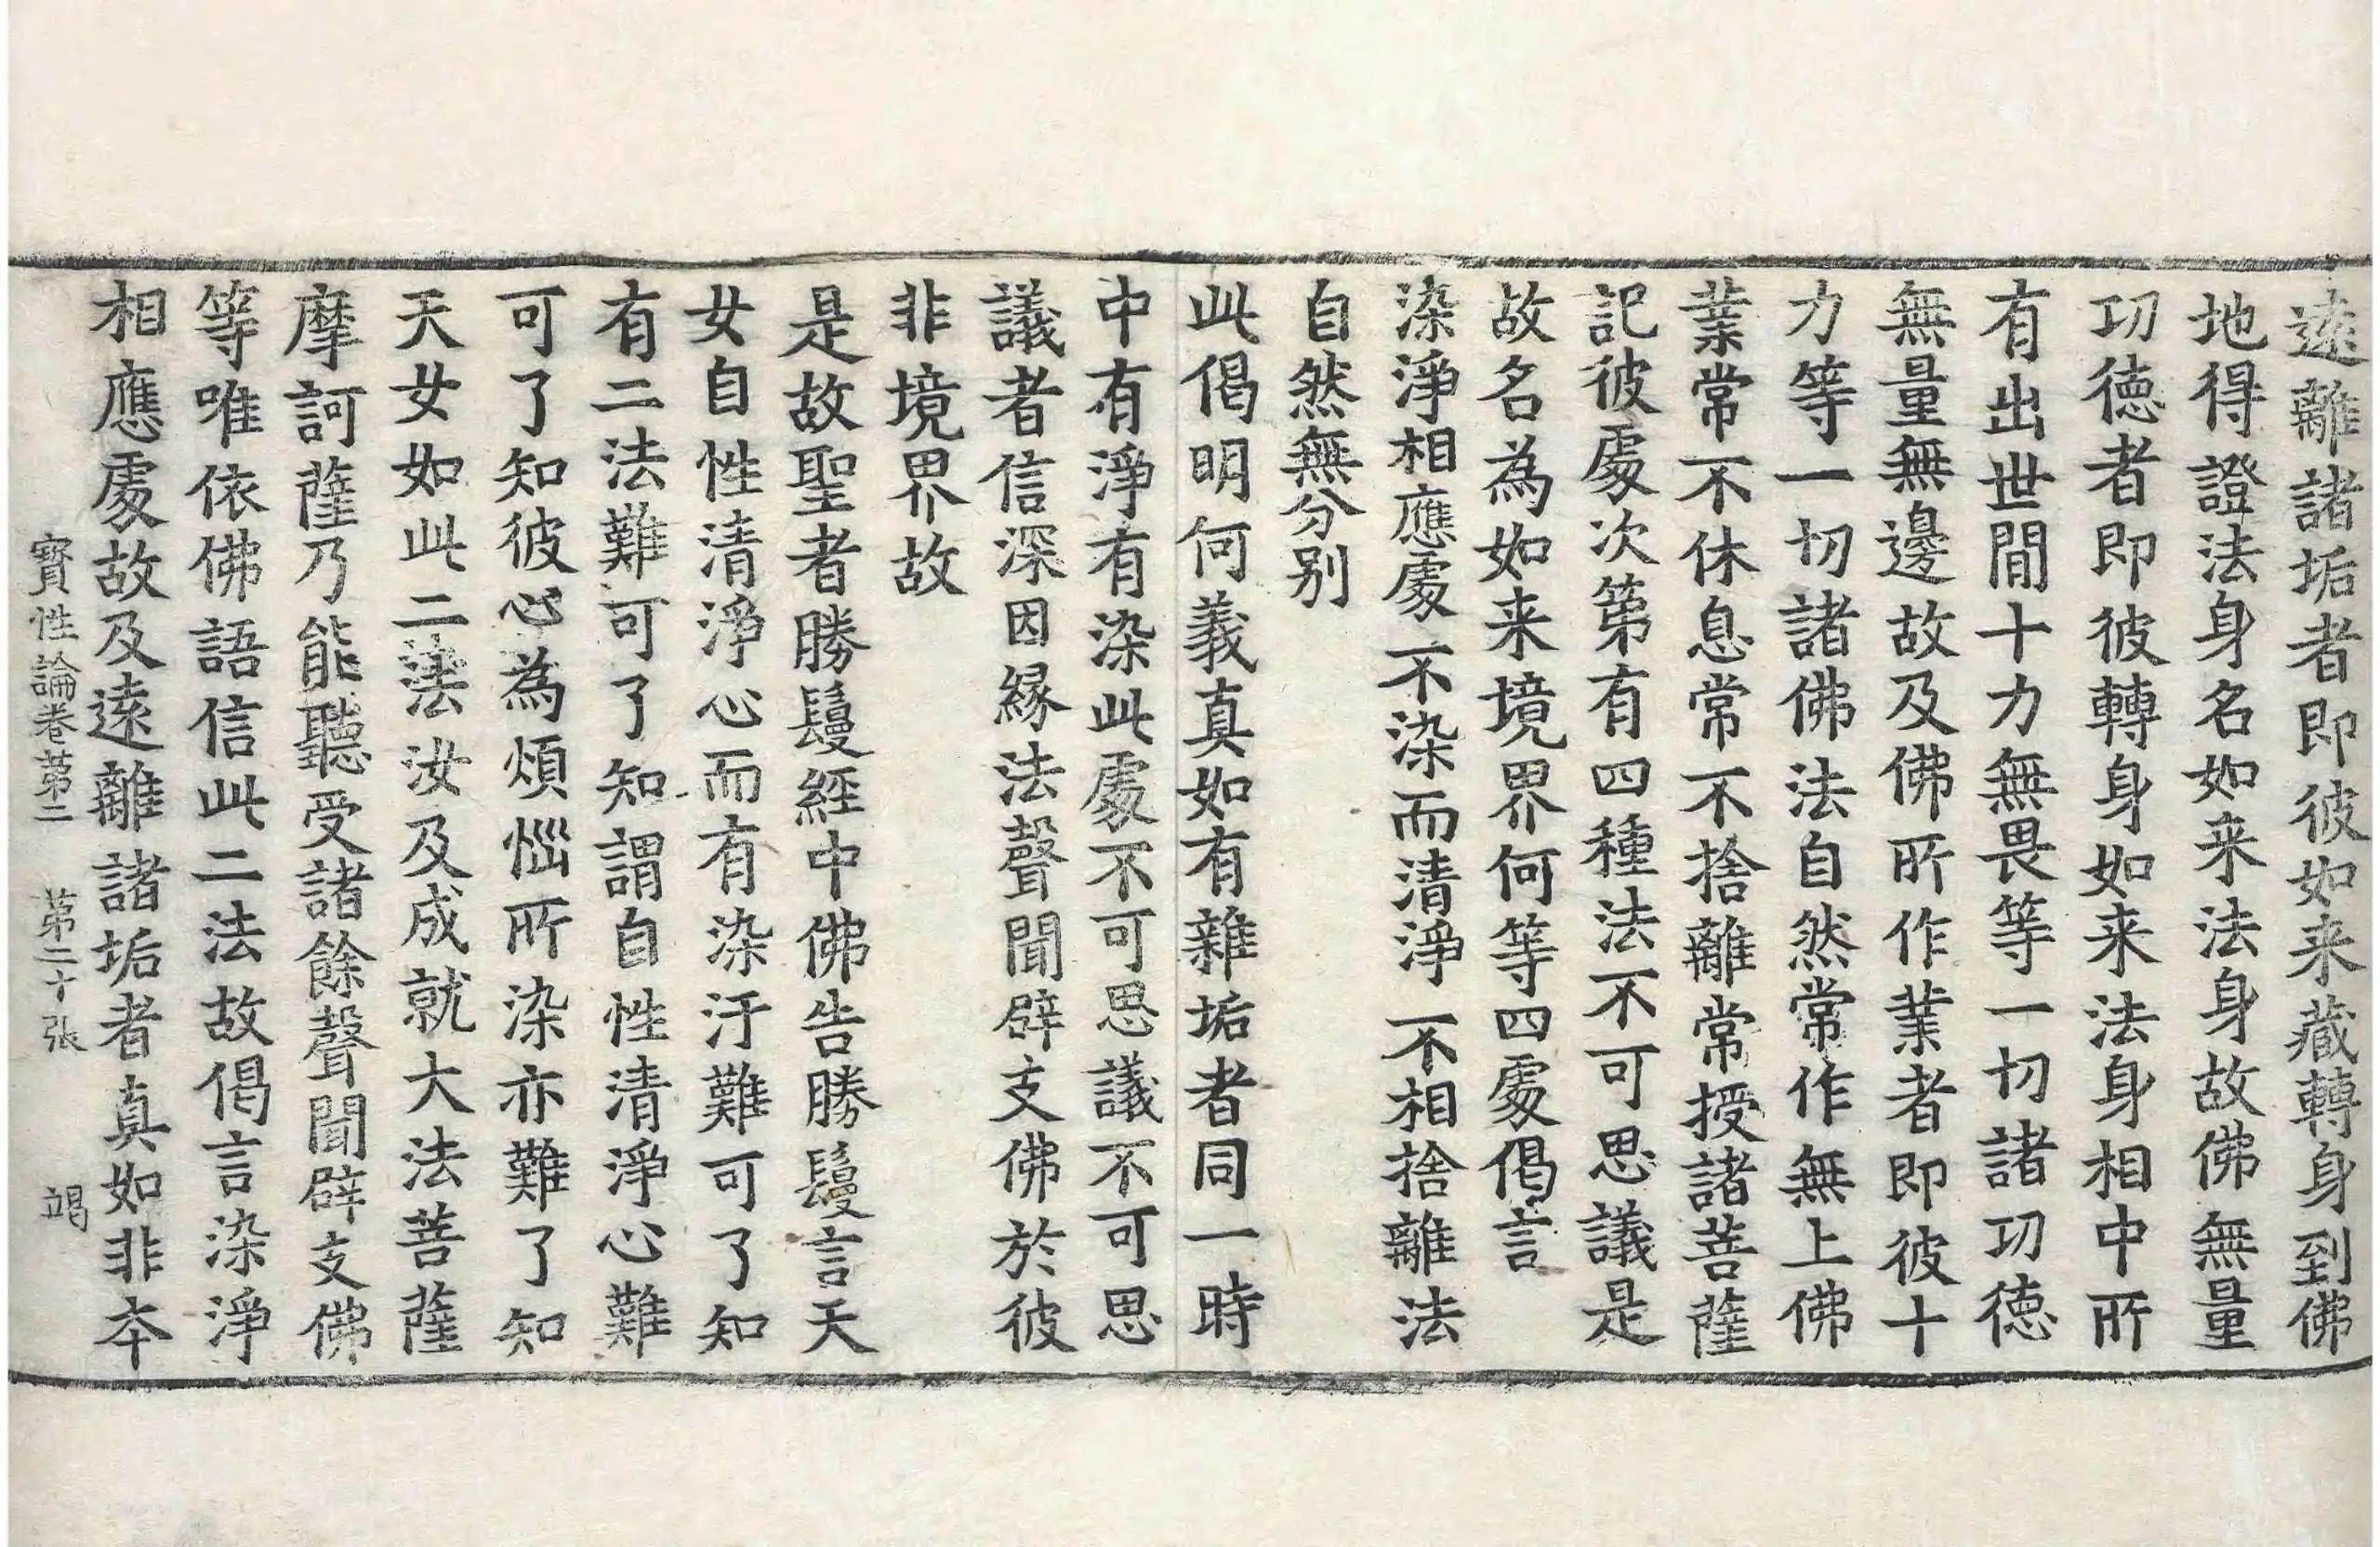 遠離諸垢者即彼如来藏轉身到佛
地得證法身名如来法身故佛無量
功徳者即彼轉身如来法身相中所
有出世間十力無畏等一切諸功徳
無量無邊故及佛所作業者即彼十
力等一切諸佛法自然常作無上佛
業常不休息常不捨離常授諸菩薩
記彼處次第有四種法不可思議是
故名為如来境界何等四處偈言
染淨相應處不染而清淨不相捨離法
自然無分别
此偈明何義真如有雜垢者同一時
中有淨有染此處不可思議不可思
議者信深因縁法聲聞辟支佛於彼
非境界故
是故聖者勝鬘經中佛告勝鬘言天
女自性清淨心而有染汙難可了知
有二法難可了知謂自性清淨心難
可了知彼心為煩惱所染亦難了知
天女如此二法汝及成就大法菩薩
摩訶薩乃能聽受諸餘聲聞辟支佛
等唯依佛語信此二法故偈言染淨
相應處故及遠離諸垢者真如非夲
寳性論卷第二　第二十張　竭